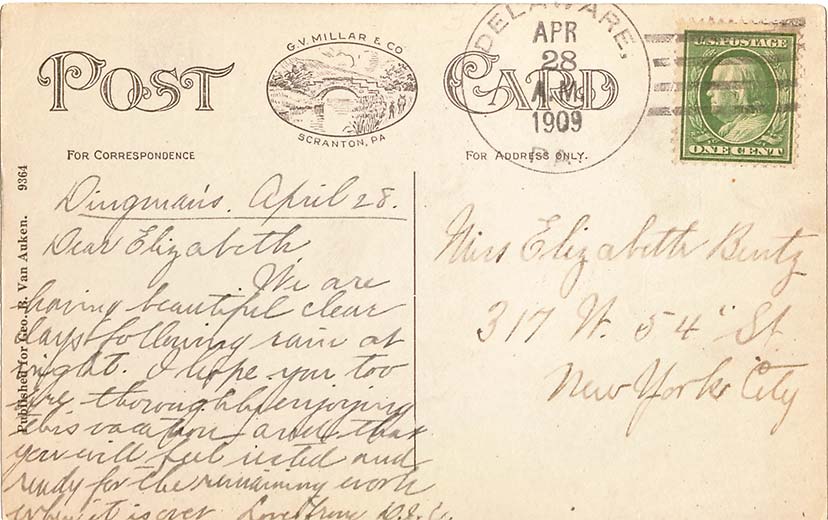 G.V. MILLAR & CO
SCRANTON, PA
POST CARD
FOR CORRESPONDENCE
FOR ADDRESS ONLY.
DELAWARE,
APR
28
A.M.
1909
PA
U.S. POSTAGE
ONE CENT
9364
Published for Geo. E. Van Auken.
Dingman's. April 28.
Dear Elizabeth
We are
having beautiful clear
days following rain at
night. I hope you too
are thoroughly enjoying
this vacation and that
you will feel rested and
ready for the remaining work
when it is over. Love from
Miss Elizabeth Bentz
317 W. 54" St
New York City